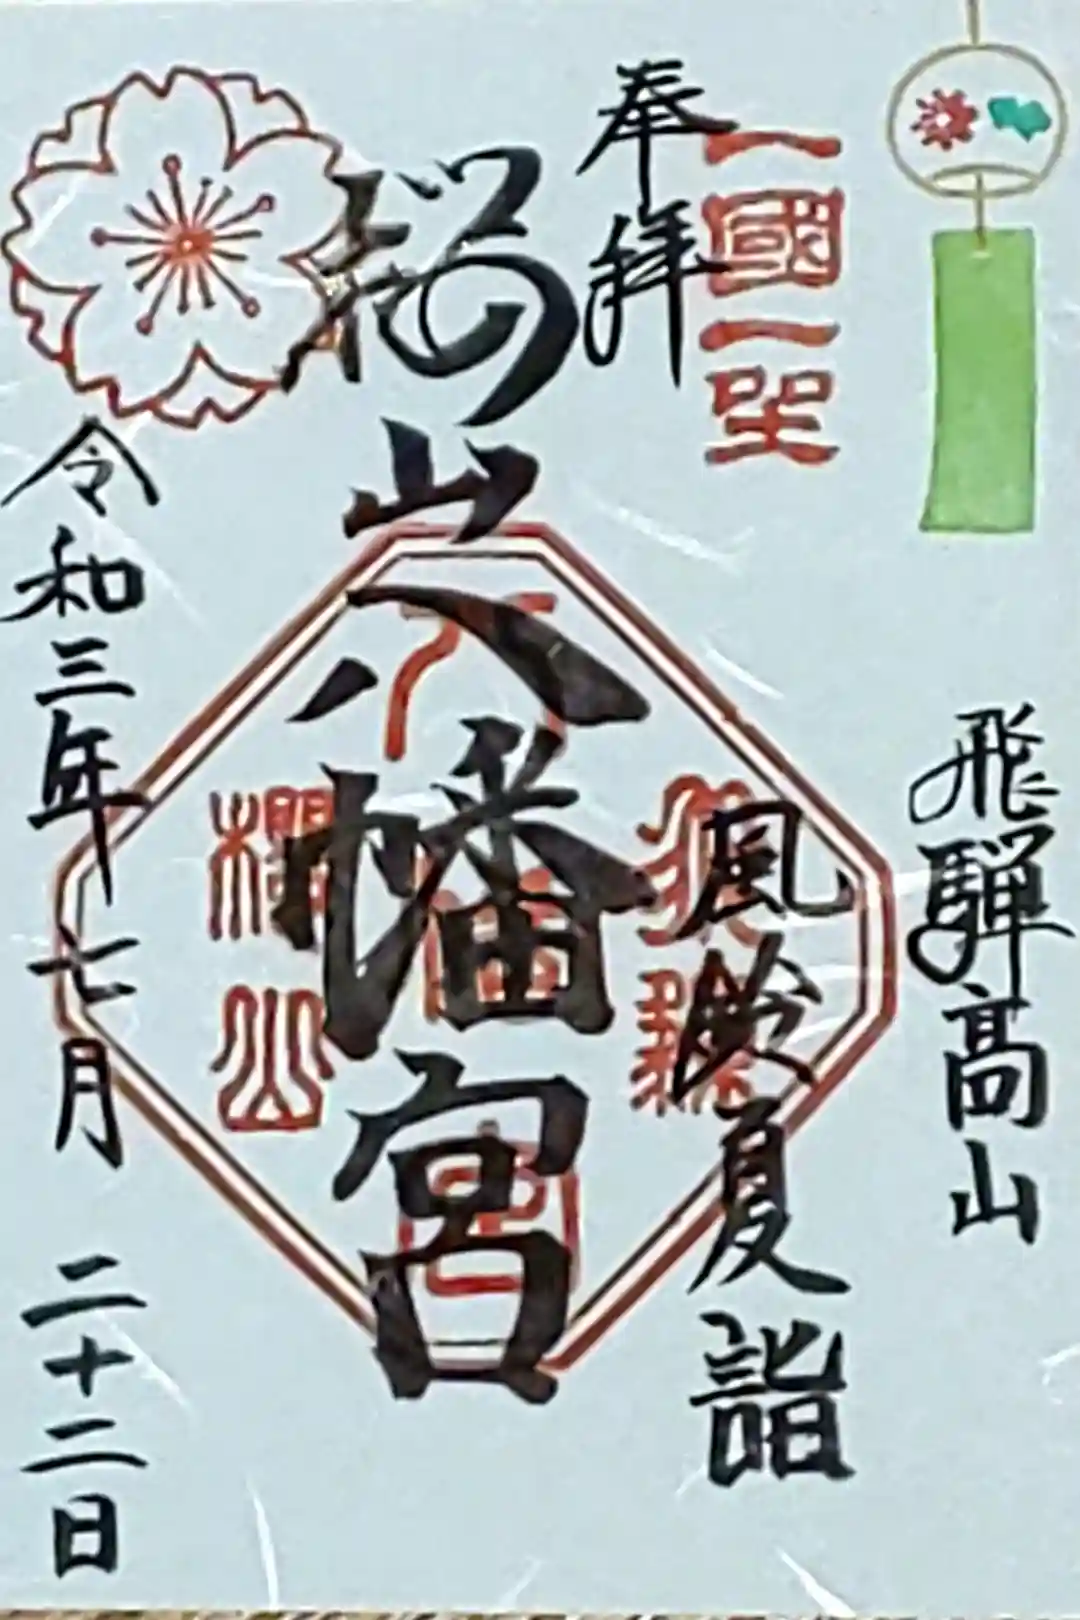 飛騨高山
一國一社
奉拝
風鈴夏詣
桜山八幡宮
飛騨
八幡宮
櫻山
令和三年七月二十二日